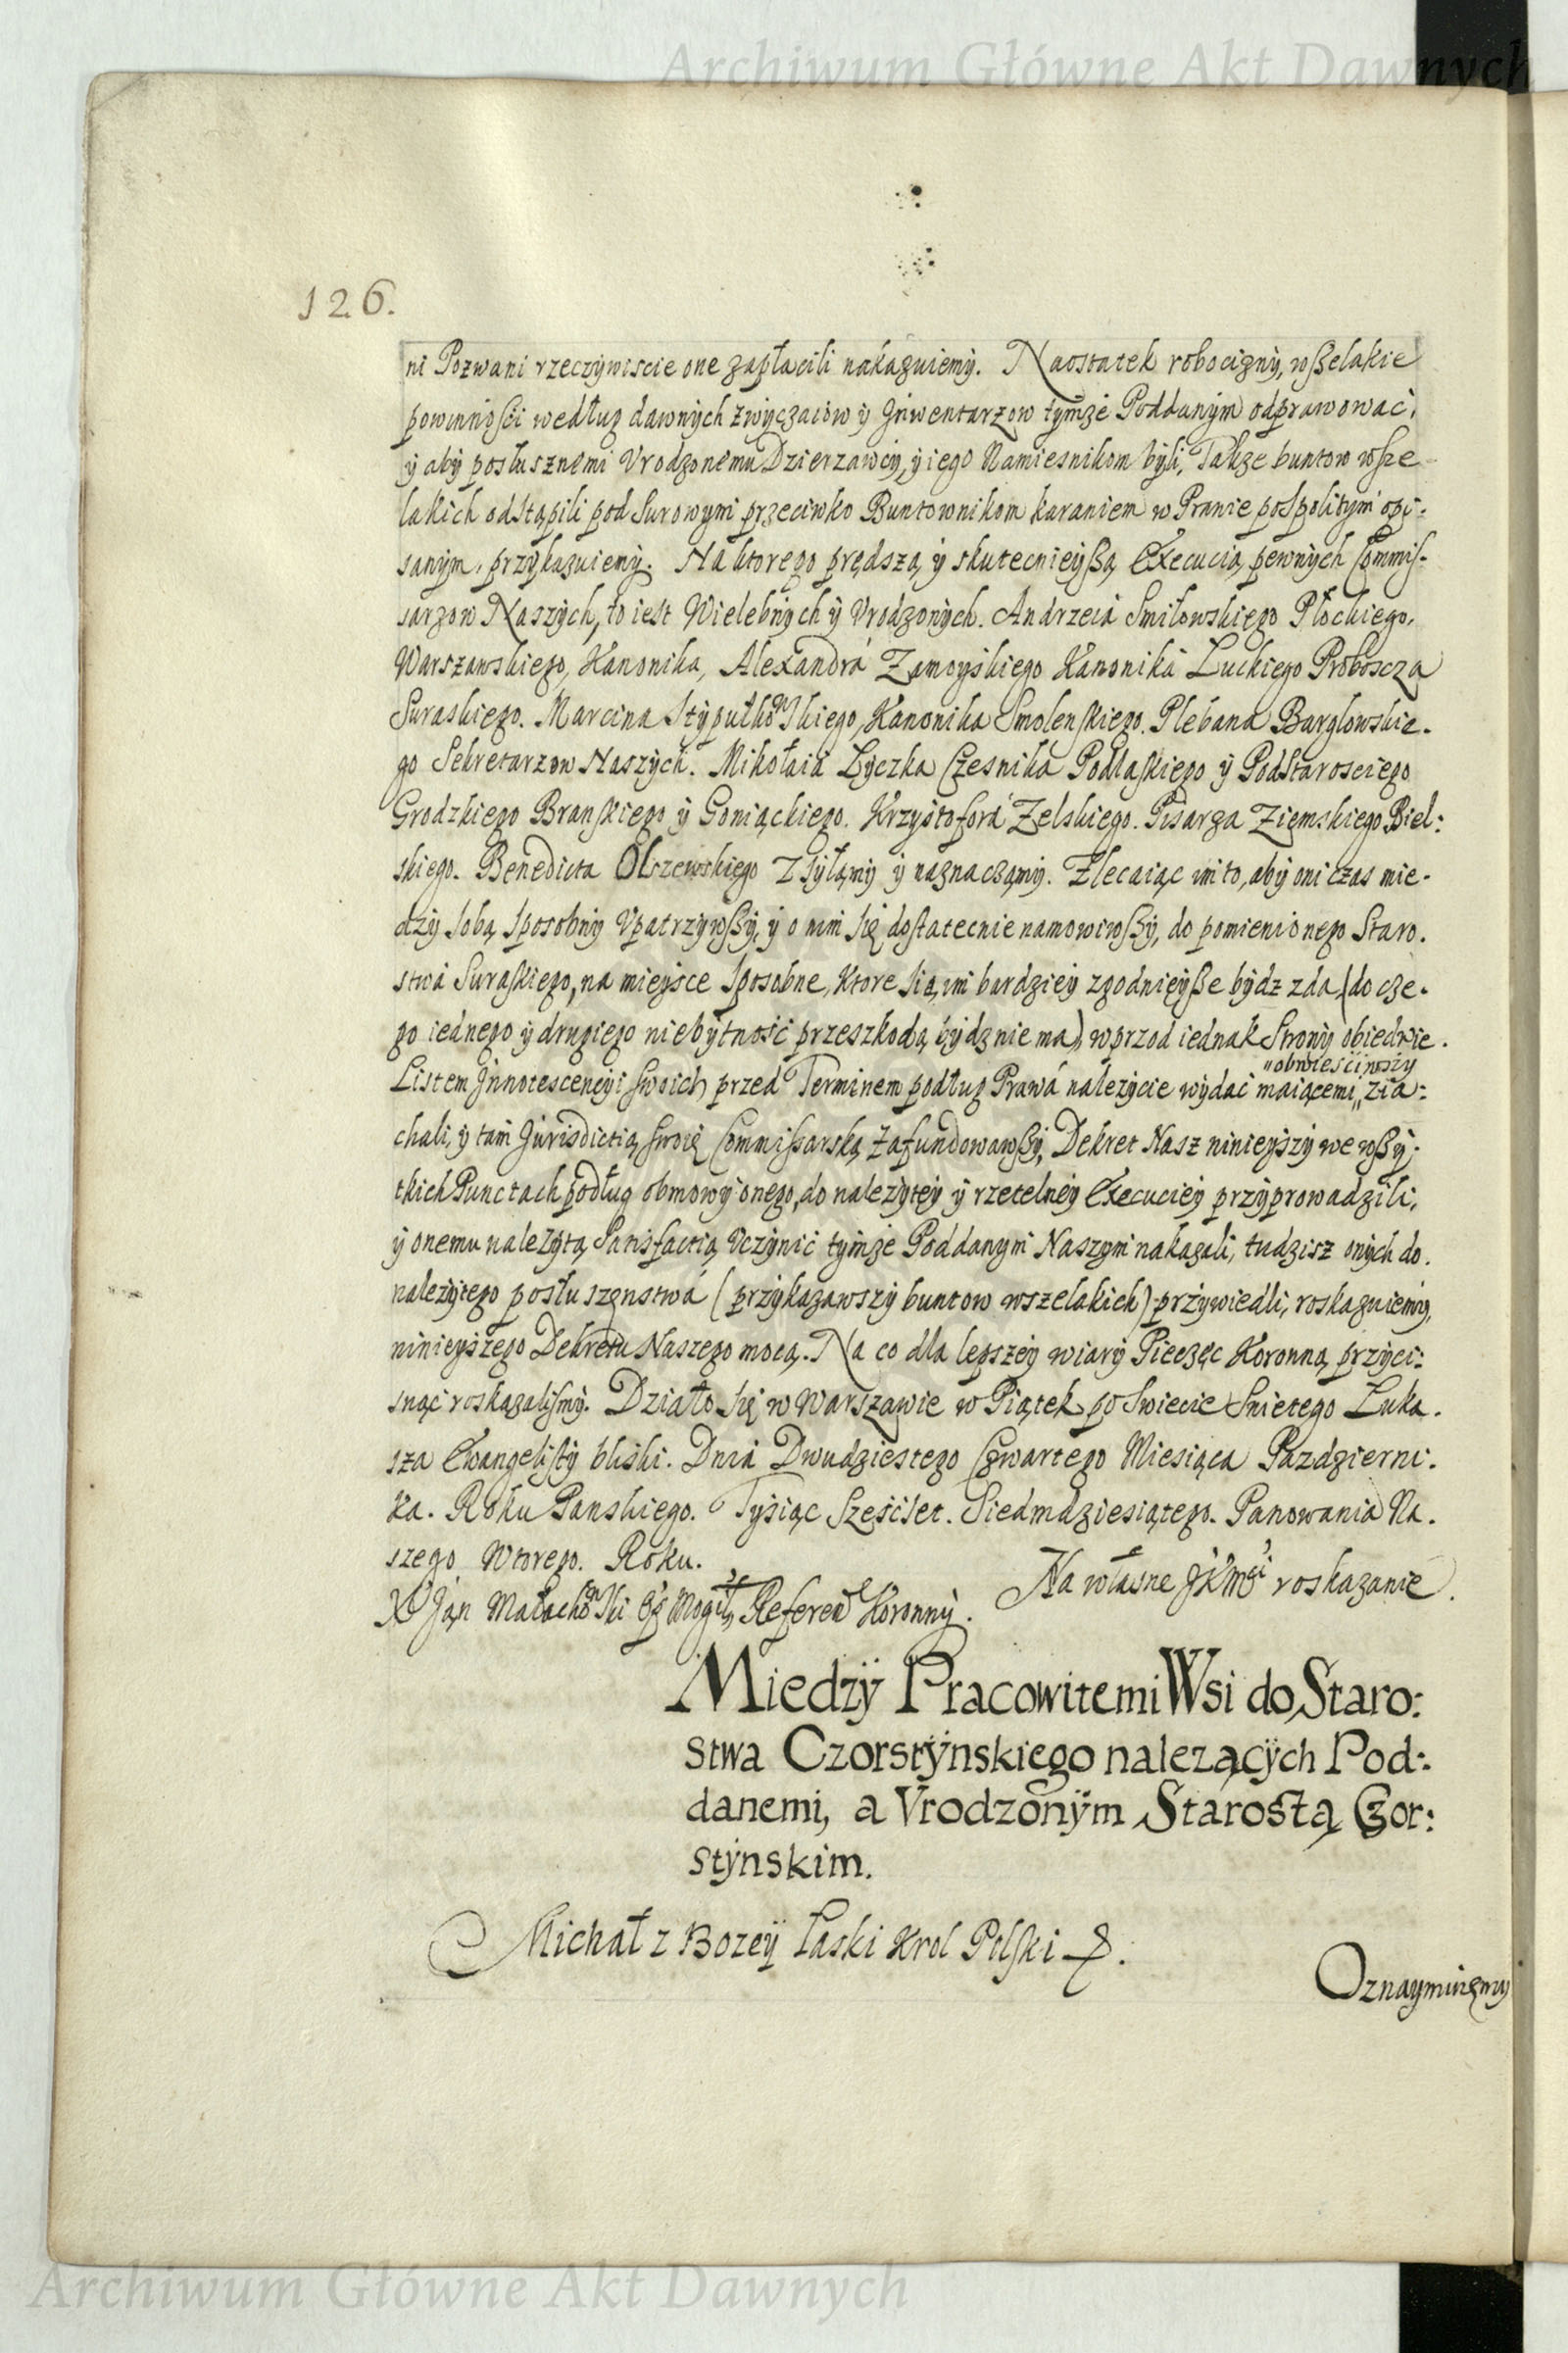 Archiwum Główne Akt Dawnych
126.
ni Pozwani rzeczywiscie one zapłacili nakazuiemy. Naostatek robocizny, wszelakie
powinności według dawnych zwyczaiow y Inwentarzow tymże Poddanym odprawować,
y aby posłusznemi Vrodzonemu Dzierzawcy, y iego Namiesnikom byli, Także buntow wsze
lakich odstąpili pod Surowym przeciwko Buntownikom karaniem w Prawie pospolitym opi:
sanym, przykazuiemy. Na ktorego prędszą y skutecznieyszą Execucią pewnych Commis-
sarzow Naszych, to iest Wielebnych y Vrodzonych. Andrzeia Smiłowskiego Płockiego,
Warszawskiego, Kanonika, Alexandra Zamoyskiego Kanonika Luckiego Proboscza
Suraskiego. Marcina Stypułkowskiego, Kanonika Smolenskiego. Plebana Barglowskie.
go Sekretarzow Naszych. Mikołaia Łyczka Czesnika Podlaskiego y Podstarosciego
Grodzkiego Branskiego y Goniąckiego. Krzysztofora Zelskiego. Pisarza Ziemskiego Biel:
skiego. Benedicta Olszewskiego Zsyłamy y naznaczamy. Zlecaiąc im to, aby oni czas mie-
dzy sobą sposobny Vpatrzywszy, y o nim się dostatecnie namowiwszy, do pomienionego Staro.
stwa Suraskiego, na mieysce sposobne, ktore się im bardziey zgodnieysze bydz zda, (do cze-
go iednego y drugiego niebytność przeszkodą bydz nie ma) wprzod iednak Strony obiedwie.
"obwieściwszy
Listem Innotescencyi swoich przed Terminem podług Prawa należycie wydać maiącemi, "zia:
chali, y tam Jurisdictią swoię Commissarską Zafundowawszy, Dekret Nasz ninieyszy we wszy:
tkich Punctach podług obmowy onego, do należytey y rzetelney Execuciey przyprowadzili,
y onemu należytą Satisfactią Vczynić tymże Poddanym Naszym nakazali, tudzisz onych do.
należytego posłuszenstwa (przykazawszy buntow wszelakich) przywiedli, roskazuiemy,
ninieyszego Dekretu Naszego mocą. Na co dla lepszey wiary Pieczęc Koronną przyci:
snąć roskazalismy. Działo się w Warszawie w Piątek po Swiecie Swietego Luka.
sza Ewangelisty bliski. Dnia Dwudziestego Czwartego Miesiąca Pazdzierni.
ka. Roku Panskiego. Tysiąc Sześćset. Siedmdziesiątego. Panowania Na.
szego Wtorego. Roku.
Na własne JKMci roskazanie.
X Jan Małachowski Mogił, Referen Koronny.
Miedzÿ Pracowitemi Wsi do Staro:
stwa Czorstÿnskiego nalezącÿch Pod:
danemi, a Vrodzonÿm Starostą Czor:
stÿnskim.
Michał z Bozeÿ Łaski Krol Polski &.
Oznaymuięmy
Archiwum Główne Akt Dawnych